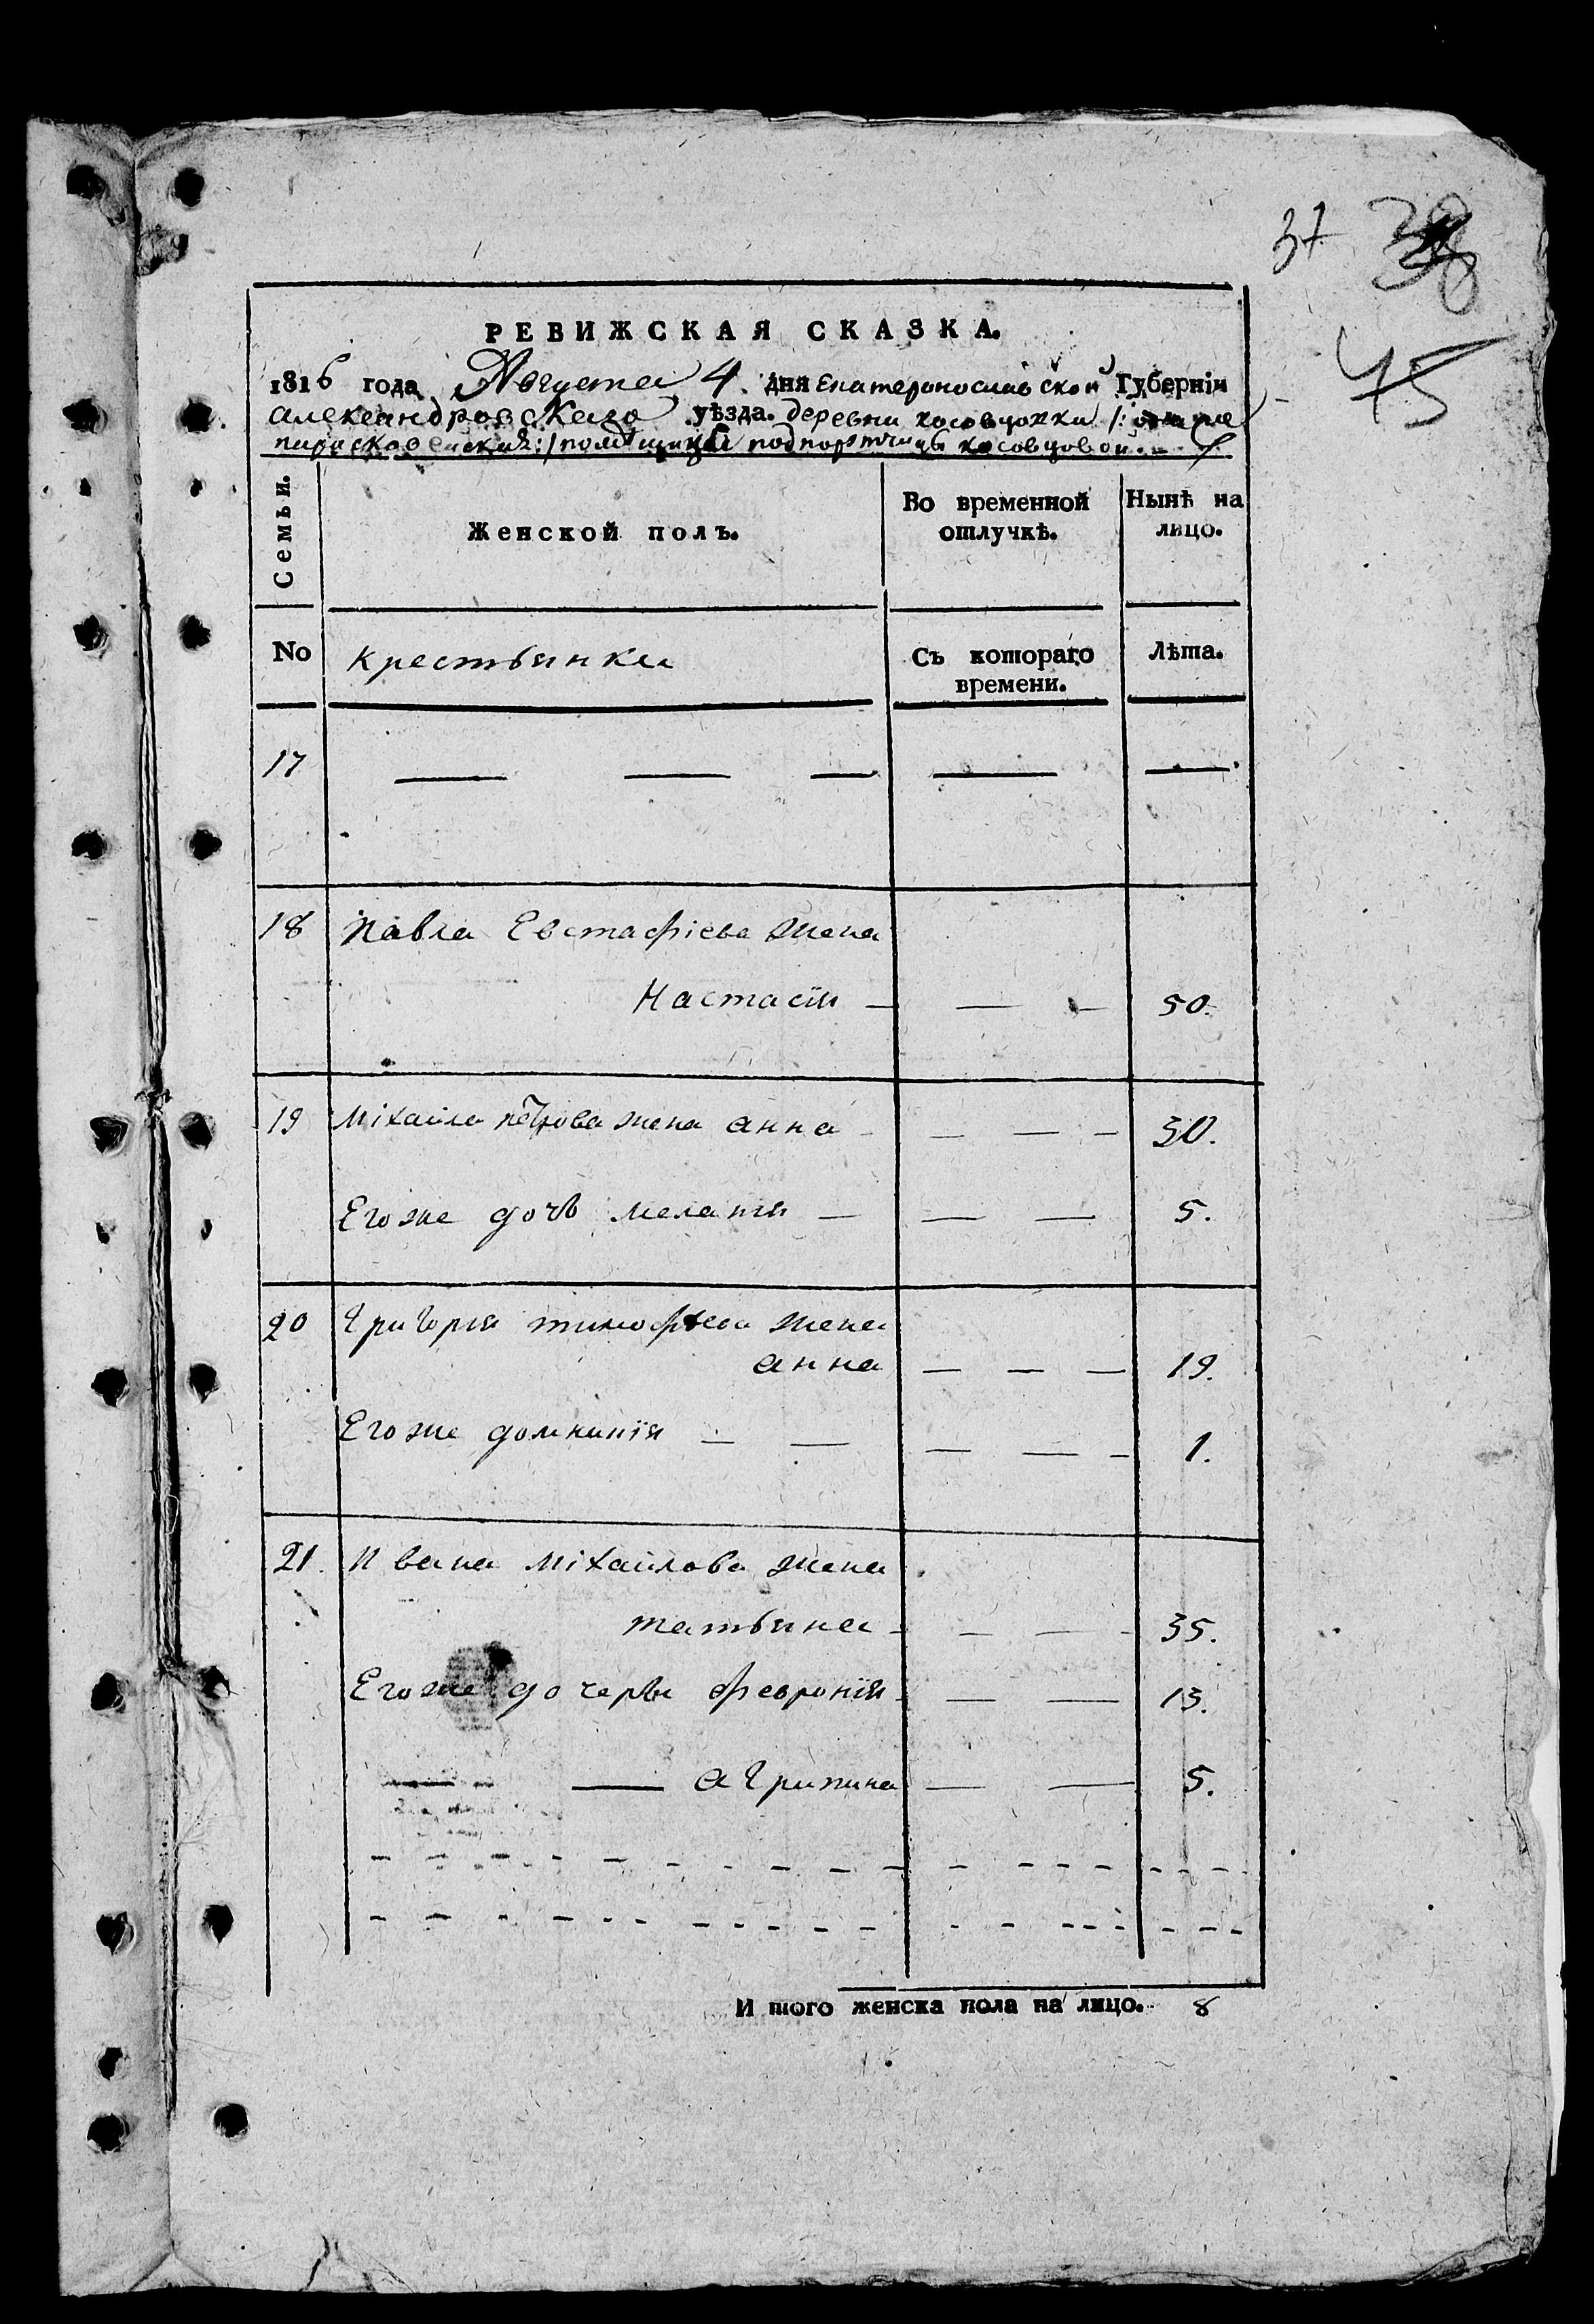 37 38
45
РЕВИЖСКАЯ СКАЗКА.
1816 года Августа 4 дня Екатериносlавской Губерніи
александровскаго уѣзда. деревни косовцовки /:
помѣщицы подпоротчицы косовцовой
Семьи.
Женской полъ.
Во временной отлучкѣ.
Нынѣ на лицо.
No крестьянки Съ котораго времени. Лѣта.
17 — — — — —
18 Павла Евстафіева жена
Настасія — — — 50.
19 Міхаила петрова жена анна — — — 30.
Егоже дочь меланія — — — 5.
20 Григорія тимофеева жена
анна — — — 19.
Егоже домникія — — — — — 1.
21. Ивана Міхаилова жена
татьяна — — — 35.
Егоже дочери феврония — — 13.
— — агрипина — — 5.
И того женска пола на лицо. 8